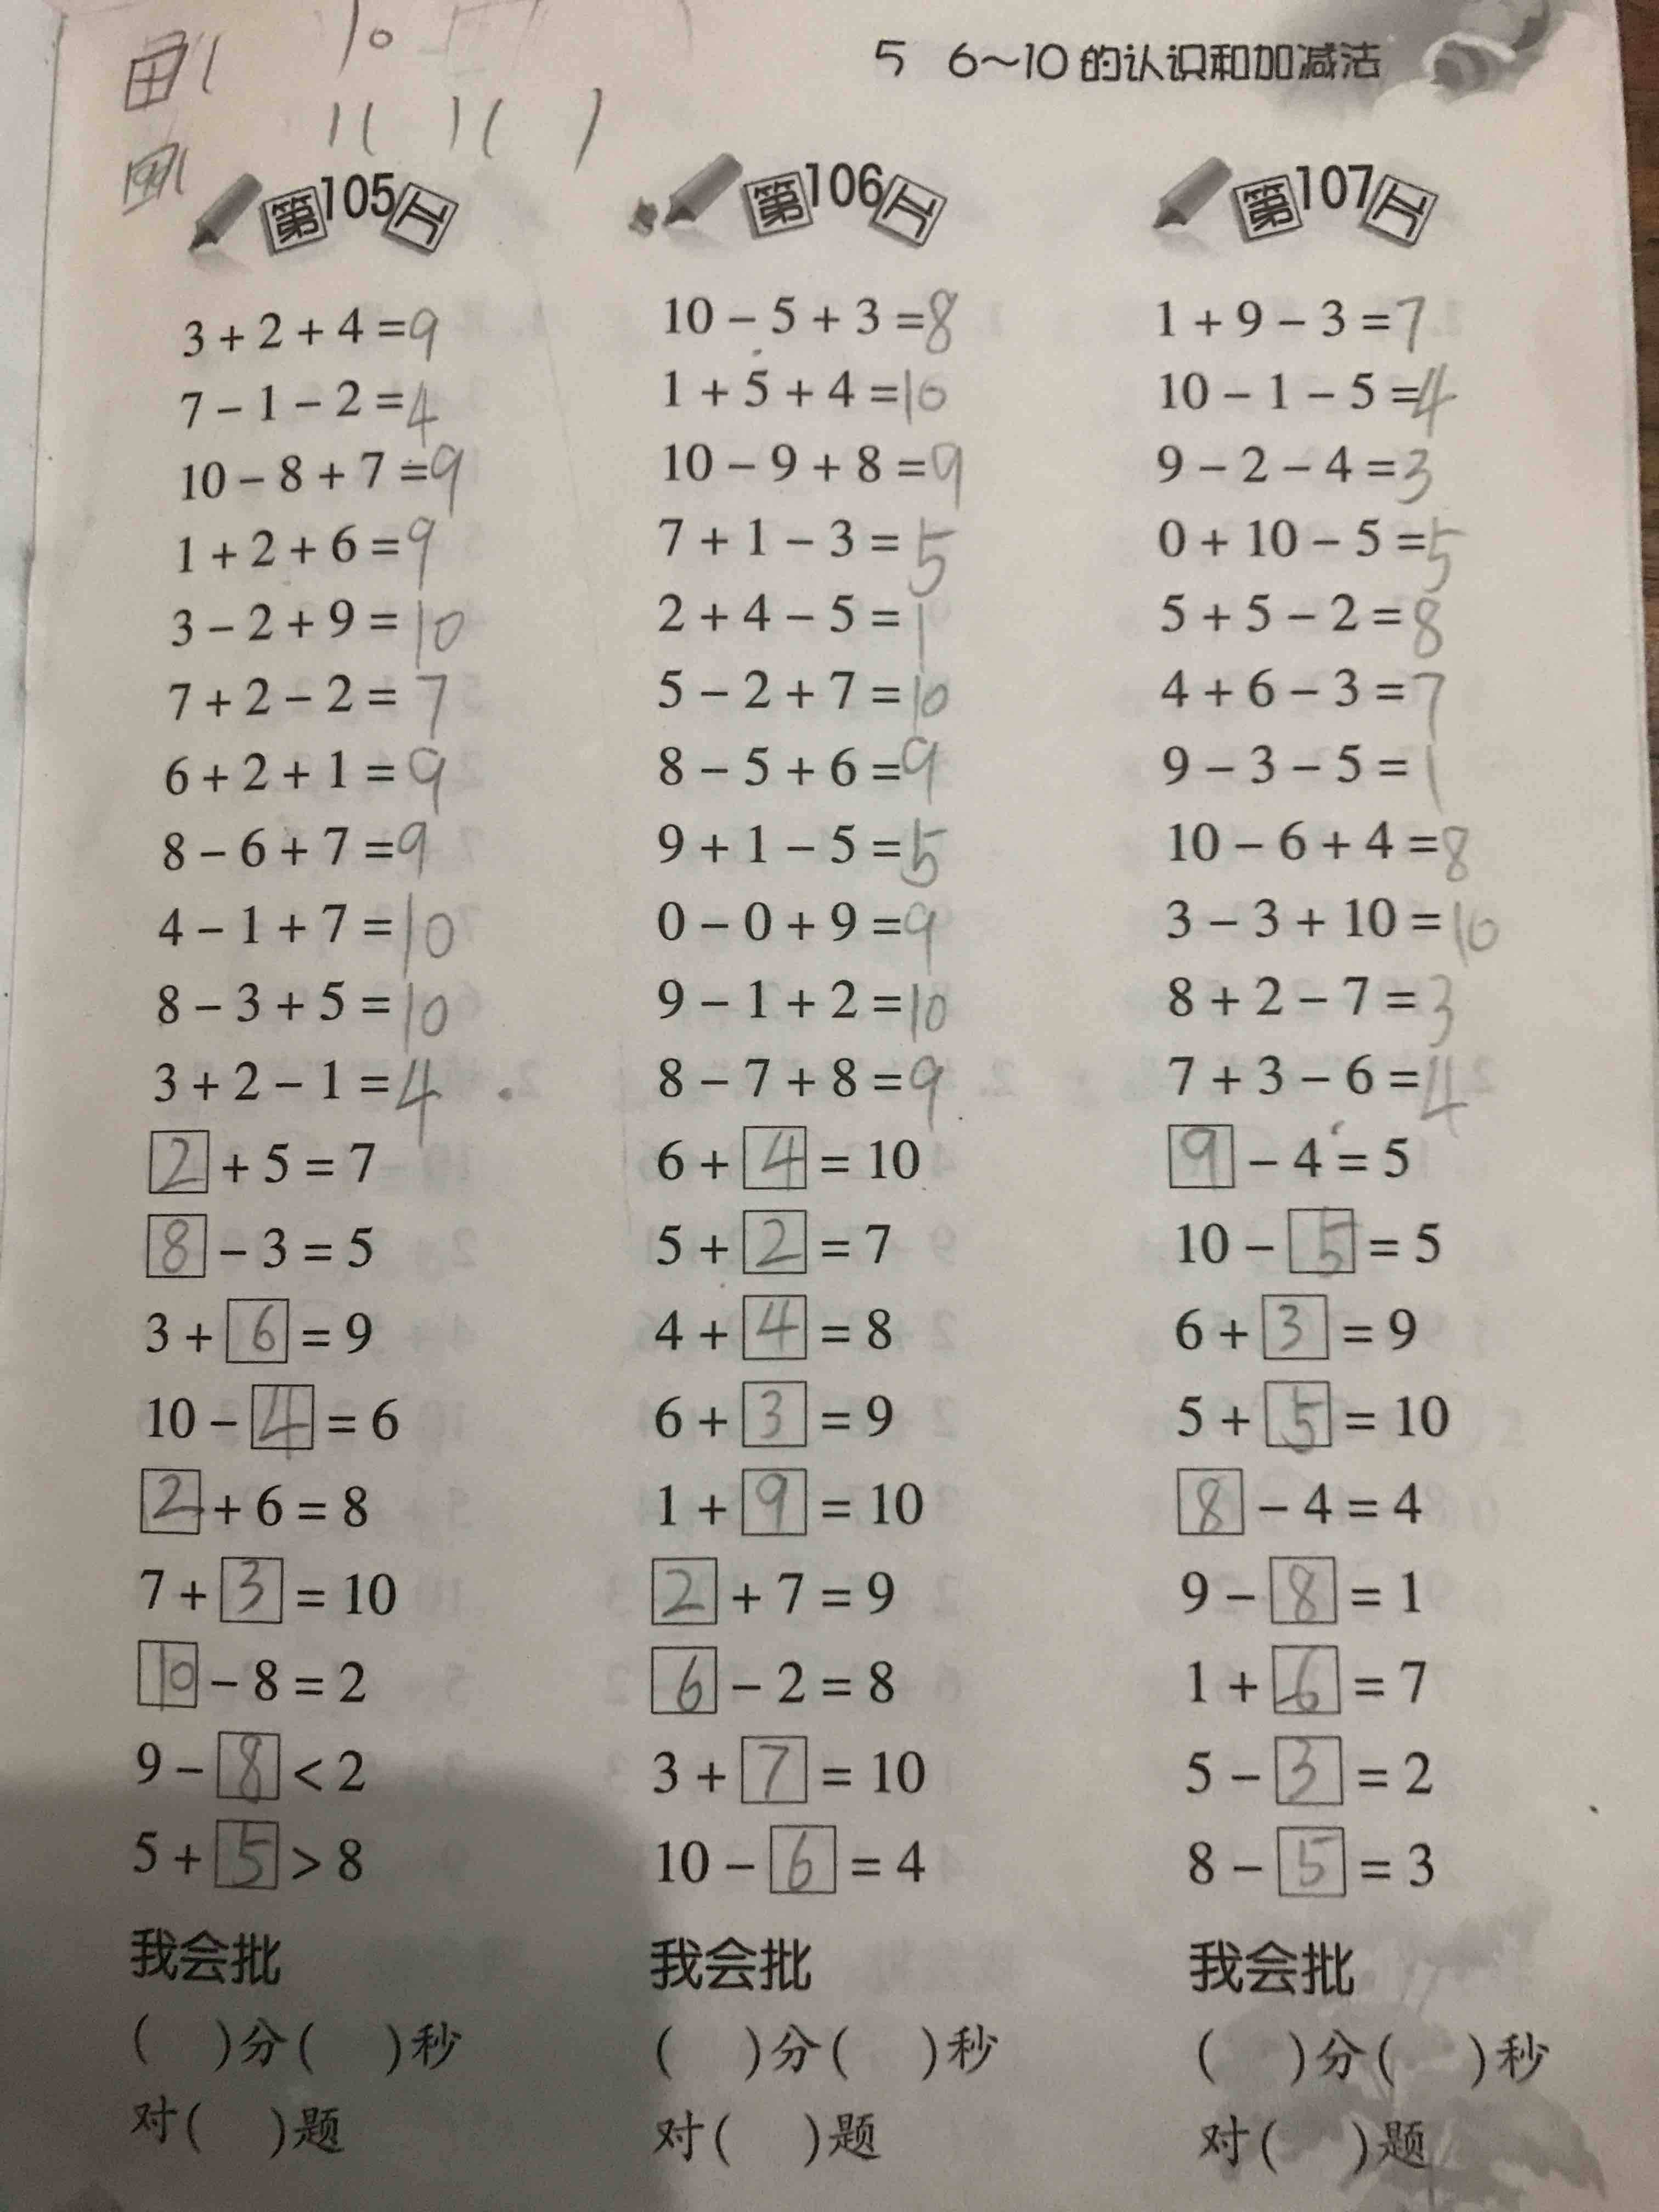 5 6～10 的认识和加减法
10
11 11 1
第105天
3 + 2 + 4 = 9
7 - 1 - 2 = 4
10 - 8 + 7 = 9
1 + 2 + 6 = 9
3 - 2 + 9 = 10
7 + 2 - 2 = 7
6 + 2 + 1 = 9
8 - 6 + 7 = 9
4 - 1 + 7 = 10
8 - 3 + 5 = 10
3 + 2 - 1 = 4
2 + 5 = 7
8 - 3 = 5
3 + 6 = 9
10 - 4 = 6
2 + 6 = 8
7 + 3 = 10
10 - 8 = 2
9 - 8 < 2
5 + 5 > 8
我会批
( )分( )秒
对( )题
第106天
10 - 5 + 3 = 8
1 + 5 + 4 = 10
10 - 9 + 8 = 9
7 + 1 - 3 = 5
2 + 4 - 5 = 1
5 - 2 + 7 = 10
8 - 5 + 6 = 9
9 + 1 - 5 = 5
0 - 0 + 9 = 9
9 - 1 + 2 = 10
8 - 7 + 8 = 9
6 + 4 = 10
5 + 2 = 7
4 + 4 = 8
6 + 3 = 9
1 + 9 = 10
2 + 7 = 9
6 - 2 = 8
3 + 7 = 10
10 - 6 = 4
我会批
( )分( )秒
对( )题
第107天
1 + 9 - 3 = 7
10 - 1 - 5 = 4
9 - 2 - 4 = 3
0 + 10 - 5 = 5
5 + 5 - 2 = 8
4 + 6 - 3 = 7
9 - 3 - 5 = 1
10 - 6 + 4 = 8
3 - 3 + 10 = 10
8 + 2 - 7 = 3
7 + 3 - 6 = 4
9 - 4 = 5
10 - 5 = 5
6 + 3 = 9
5 + 5 = 10
8 - 4 = 4
9 - 8 = 1
1 + 6 = 7
5 - 3 = 2
8 - 5 = 3
我会批
( )分( )秒
对( )题